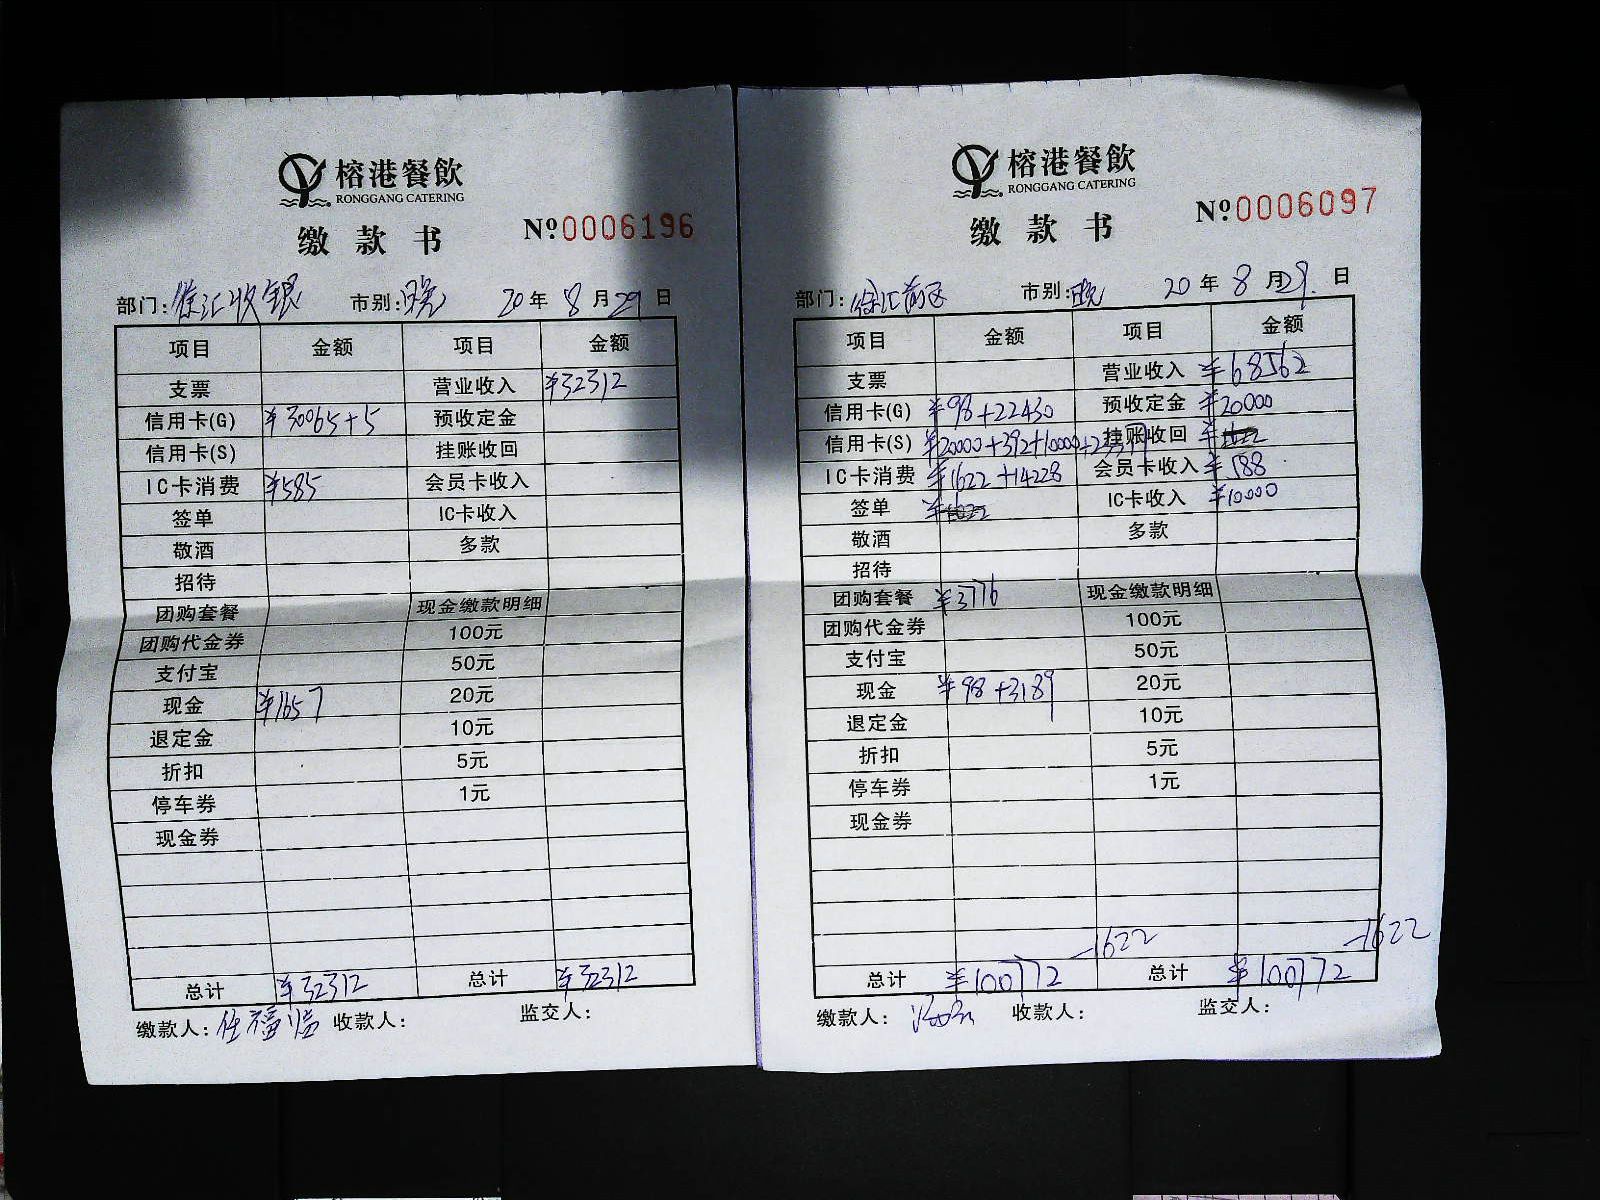 榕港餐飲
RONGGANG CATERING
缴款书 №0006196
部门:徐汇收银 市别:晚 20年8月29日
项目 金额 项目 金额
支票 营业收入 ¥32312
信用卡(G) ¥30065+5 预收定金
信用卡(S) 挂账收回
IC卡消费 ¥585 会员卡收入
签单 IC卡收入
敬酒 多款
招待
团购套餐 现金缴款明细
团购代金券 100元
支付宝 50元
现金 ¥1657 20元
退定金 10元
折扣 5元
停车券 1元
现金券
总计 ¥32312 总计 ¥32312
缴款人: 收款人: 监交人:
榕港餐飲
RONGGANG CATERING
缴款书 №0006097
部门:徐汇 市别:晚 20年8月29.日
项目 金额 项目 金额
支票 营业收入 ¥68562
信用卡(G) ¥98+22430 预收定金 ¥20000
信用卡(S) ¥20000+392+10000+ 挂账收回 ¥
IC卡消费 ¥1622+14228 会员卡收入 ¥588
签单 ¥ IC卡收入 ¥10000
敬酒 多款
招待
团购套餐 ¥3776 现金缴款明细
团购代金券 100元
支付宝 50元
现金 ¥98+3189 20元
退定金 10元
折扣 5元
停车券 1元
现金券
-1622 -1622
总计 ¥100772 总计 ¥100772
缴款人: 收款人: 监交人: